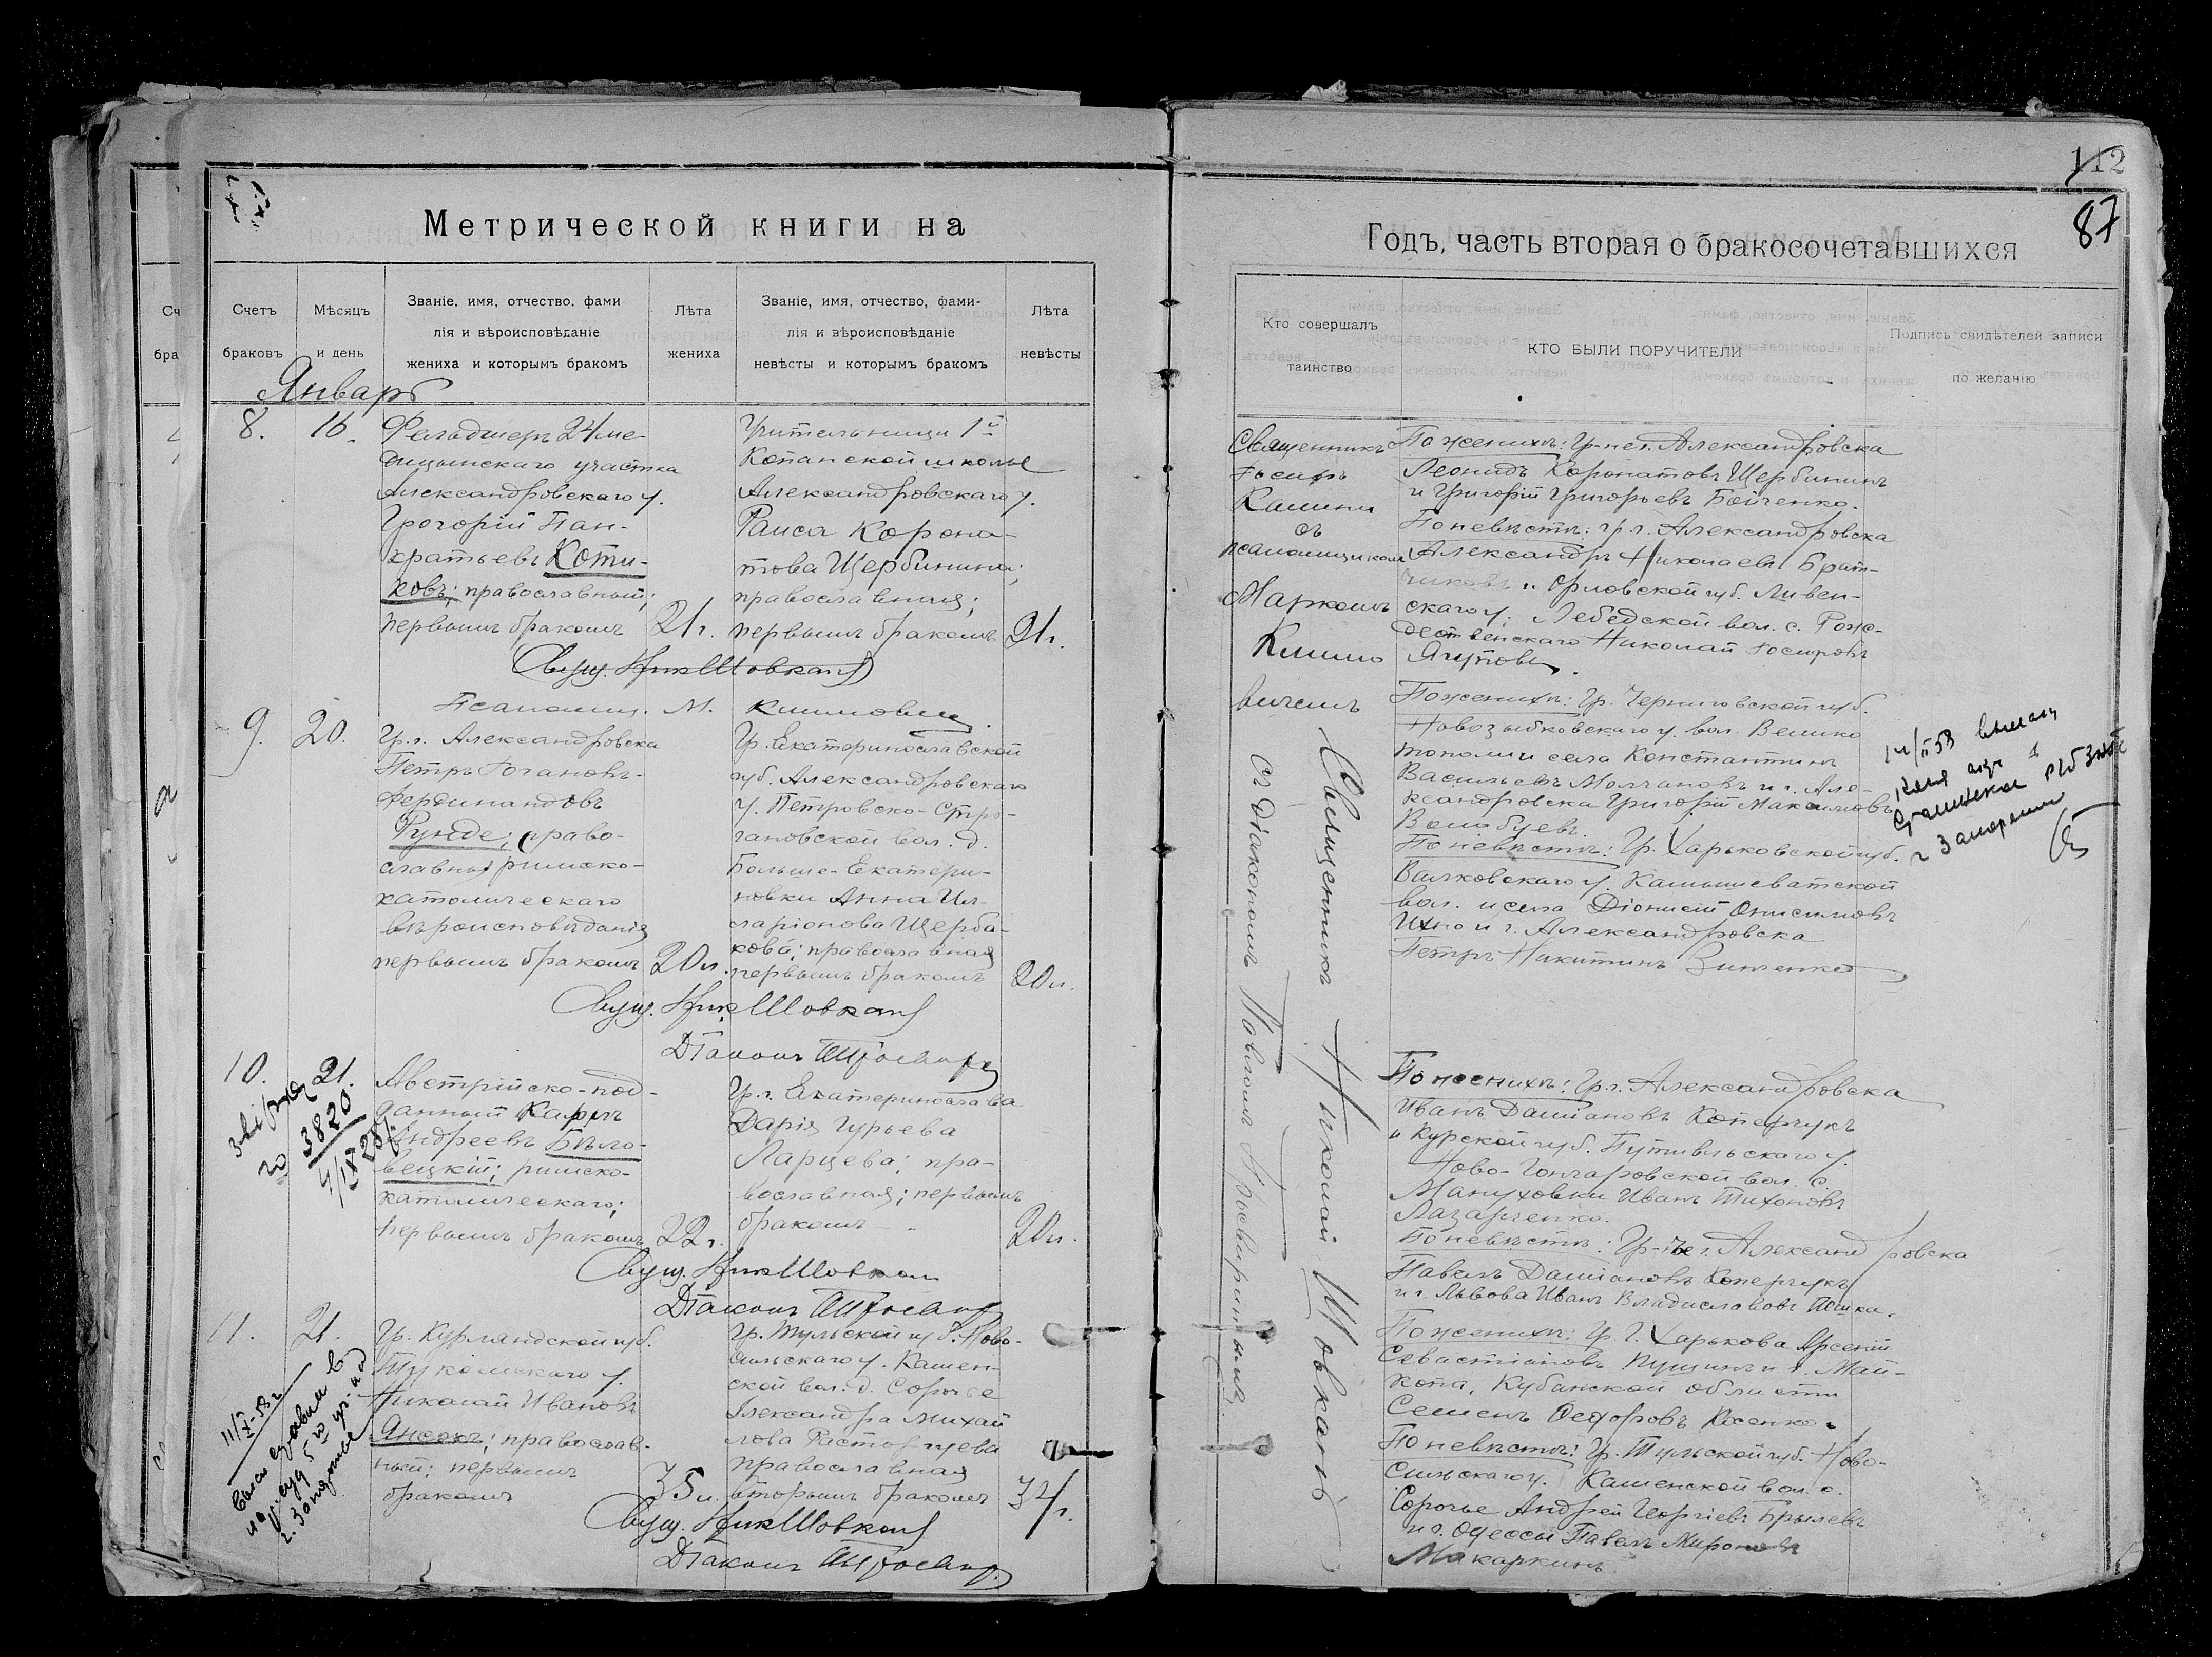 Метрической книги на
Счетъ браковъ
Мѣсяцъ и день
Званіе, имя, отчество, фами
лія и вѣроисповѣданіе
жениха и которымъ бракомъ
Лѣта жениха
Званіе, имя, отчество, фами-
лія и вѣроисповѣданіе
невѣсты и которымъ бракомъ
Лѣта невѣсты
Январь
8.
16.
Фельдшеръ 24 ме-
дицынскаго участка
Александровскаго у.
Григорій Пан-
кратьевъ Коти-
ковъ; православный;
первымъ бракомъ
21 г.
Учительница 1й
Копанской школы
Александровскаго у.
Раиса Корона-
това Щербинина;
православная;
первымъ бракомъ
21 г.
Свящ. Ник Шовкопл
Псаломщ. М. Климович
9.
20.
Гр. г. Александровска
Петръ Іогановъ-
Фердинандовъ
Рунде; право-
славный римско-
католическаго
вѣроисповѣданія
первымъ бракомъ
20 л.
Гр. Екатеринославской
губ. Александровскаго
у. Петровско-
вол. д.
Больше-Екатери-
новки Анна Ил-
ларіонова Щерба-
кова; православная
первымъ бракомъ
20 л.
Свящ. Ник Шовкопл
Діаконъ
10.
21.
3820
Австрійско-под-
данный Карлъ
Андреевъ Бѣло-
вецкій; римско-
католическаго;
первымъ бракомъ
22 г.
Гр. г. Екатеринослава
Дарія Гурьева
Ларцева; пра-
вославная; первымъ
бракомъ
20 л.
Свящ. Ник Шовкопл
Діаконъ
11.
21.
Гр. Курляндской губ.
у.
Николай Ивановъ
Янсонъ; православ-
ный; первымъ
бракомъ
35 л.
Гр. Тульской губ. Ново-
сильскаго у. Камен-
ской вол. д. Сорочье
Александра Михай
лова Расторгуева
православная
вторымъ бракомъ
34 г.
Свящ. Ник Шовкопл
Діаконъ
112
87
Годъ, часть вторая о бракосочетавшихся
Кто совершалъ таинство
КТО БЫЛИ ПОРУЧИТЕЛИ
Подпись свидѣтелей записи по желанію
Священникъ
Іосифъ
съ
псаломщикомъ
Маркомъ
Климо
вичемъ
Священникъ Николай Шовкопл
съ Діакономъ
По женихѣ: Гр-не г. Александровска
Леонидъ Коронатовъ Щербининъ
и Григорій Григорьевъ Бойченко.
По невѣстѣ: гр. г. Александровска
Александръ Николаевъ Брат-
чиковъ и Орловской губ. Ливен-
скаго у. Лебедской вол. с. Рож-
дественскаго Николай Іосифовъ
Ягуповъ.
По женихѣ: Гр. Черниговской губ.
Новозыбковскаго у. вол. Велико
тополи и села Константинъ
Васильевъ Молчановъ и г. Але-
ксандровска Григорій Максимовъ
По невѣстѣ: Гр. Харьковской губ.
Валковскаго у. Камышеватской
вол. и села Діонисій Онисимовъ
Ихно и г. Александровска
Петръ Никитинъ Зинченко
По женихѣ: Гр. г. Александровска
Иванъ Даміановъ Коперчукъ
и Курской губ. Путивльскаго у.
Ново-Гончаровской вол. с.
Мануховки Иванъ Тихоновъ
Лазаренко.
По невѣстѣ: Гр-не г. Александровска
Павелъ Даміановъ Коперчукъ
и г. Львова Иванъ Владиславовъ
По женихѣ: Гр. г. Харькова Арсеній
Севастіановъ Пушинъ и г. Май-
копа, Кубанской области
Семенъ Ѳедоровъ Косенко.
По невѣстѣ: Гр. Тульской губ. Ново-
сильскаго у. Каменской вол. с.
Сорочье Андрей Георгіевъ Брылевъ
и г. Одессы Павелъ Мироновъ
Макаркинъ